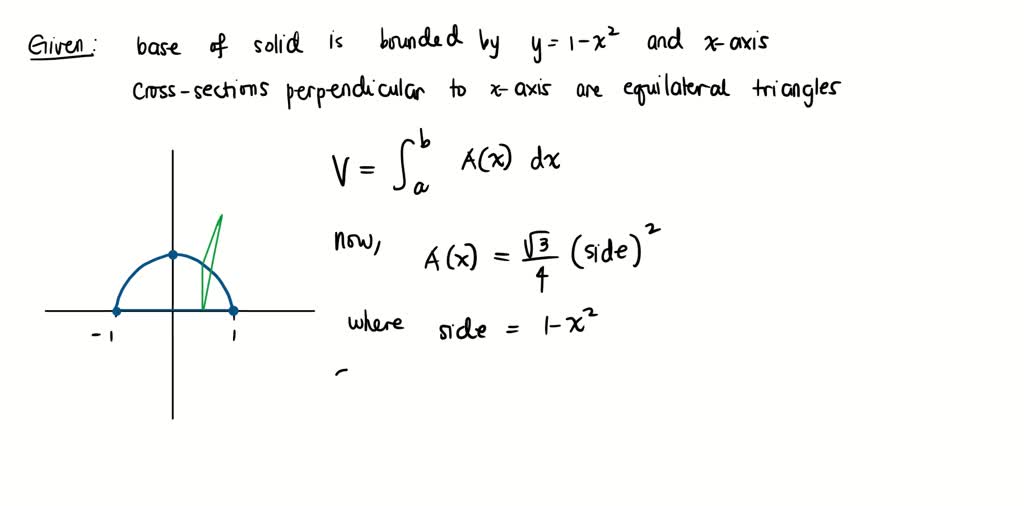 Given: base of solid is bounded by y = 1-x² and x-axis
cross-sections perpendicular to x-axis are equilateral triangles
V = ∫ₐᵇ A(x) dx
now, A(x) = √3/4 (side)²
where side = 1-x²
-1 1